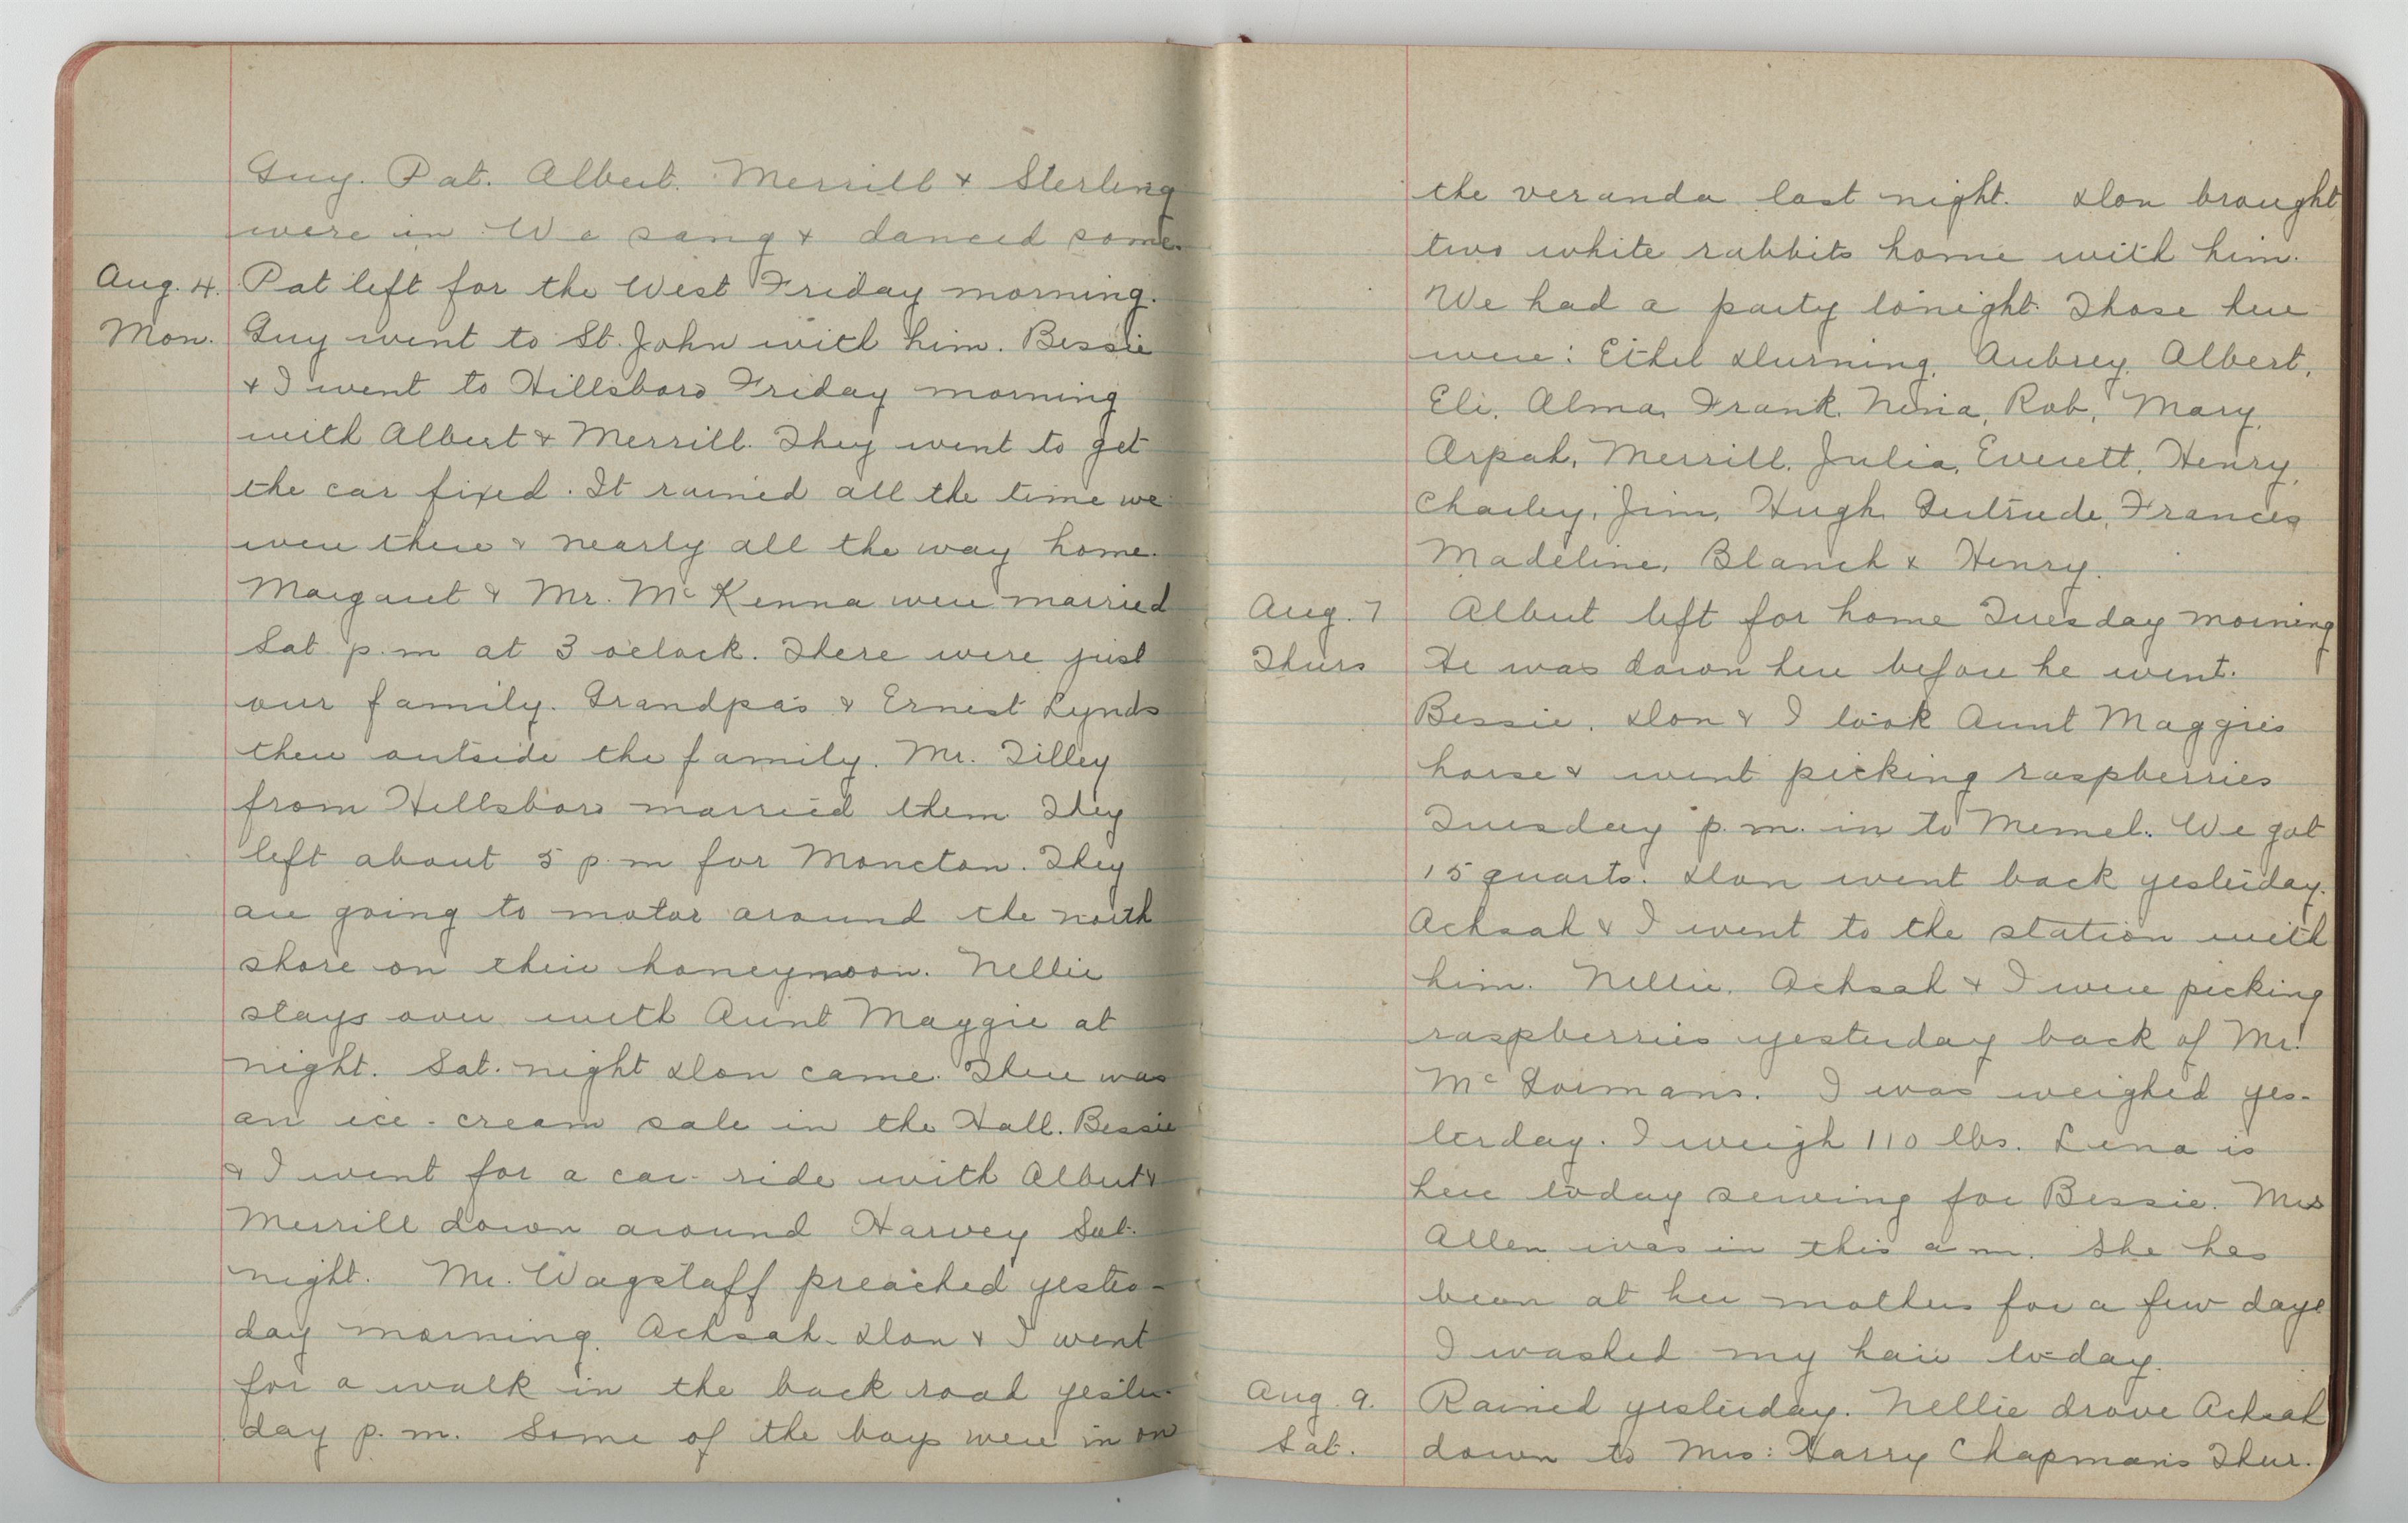 Guy. Pat. Albert. Merrill & Sterling
were in. We sang & danced some.
Aug. 4. Pat left for the West Friday morning.
Mon. Guy went to St. John with him. Bessie
& I went to Hillsboro Friday morning
with Albert & Merrill. They went to get
the car fixed. It rained all the time we
were there & nearly all the way home.
Margaret & Mr. McKenna were married
Sat p.m at 3 oclock. There were just
our family. Grandpa's & Ernest Lynds
there outside the family. Mr. Tilley
from Hillsboro married them. They
left about 5 p.m for Moncton. They
are going to motor around the north
shore on their honeymoon. Nellie
stays over with Aunt Maggie at
night. Sat. night Don came. There was
an ice-cream sale in the Hall. Bessie
& I went for a car-ride with Albert &
Merrill down around Harvey Sat.
night. Mr. Wagstaff preached yester-
day morning. Achsah. Don & I went
for a walk in the back road yester-
day p.m. Some of the boys were in on
the veranda last night. Don brought
two white rabbits home with him.
We had a party tonight. Those here
were: Ethel Durning, Aubrey, Albert,
Eli, Alma, Frank, Nina, Rob, Mary,
Arpah, Merrill, Julia, Everett, Henry,
Charley, Jim, Hugh, Gertrude, Frances
Madeline, Blanch & Henry.
Aug. 7 Albert left for home Tuesday morning
Thurs He was down here before he went.
Bessie, Don & I took Aunt Maggie's
horse & went picking raspberries
Tuesday p.m. in to Memel. We got
15 quarts. Don went back yesterday.
Achsah & I went to the station with
him. Nellie, Achsah & I were picking
raspberries yesterday back of Mr.
McGorman's. I was weighed yes-
terday. I weigh 110 lbs. Lena is
here today sewing for Bessie. Mrs
Allen was in this a m. She has
been at her mothers for a few days
I washed my hair to-day.
Aug. 9. Rained yesterday. Nellie drove Achsah
Sat. down to Mrs. Harry Chapman's Thur.